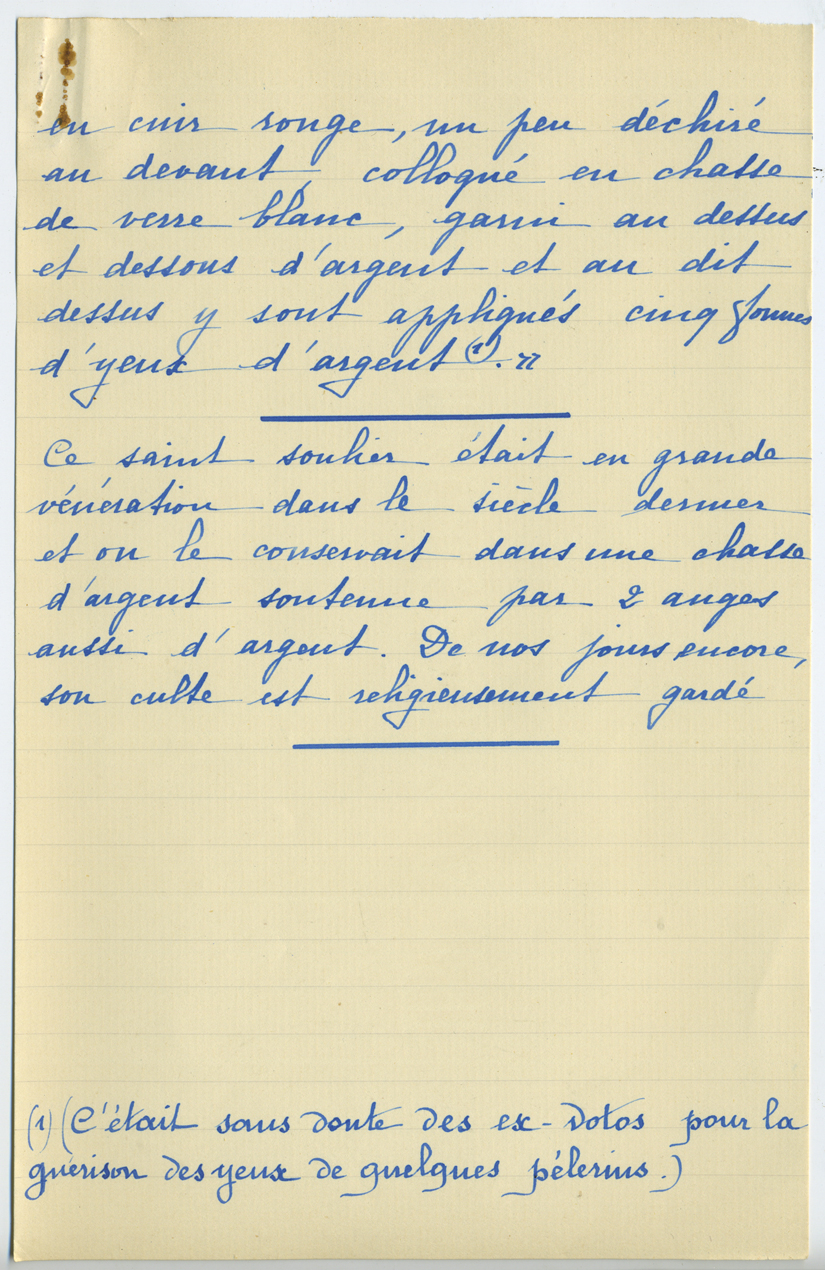 en cuir rouge, un peu déchiré
au devant, colloqué en chasse
de verre blanc, garni au dessus
et dessous d'argent et au dit
dessus y sont appliqués cinq formes
d'yeux d'argent (1). »
Ce saint soulier était en grande
vénération dans le siècle dernier
et on le conservait dans une chasse
d'argent soutenue par 2 anges
aussi d'argent. De nos jours encore,
son culte est religieusement gardé
(1) (C'était sans doute des ex-votos pour la
guérison des yeux de quelques pélerins.)